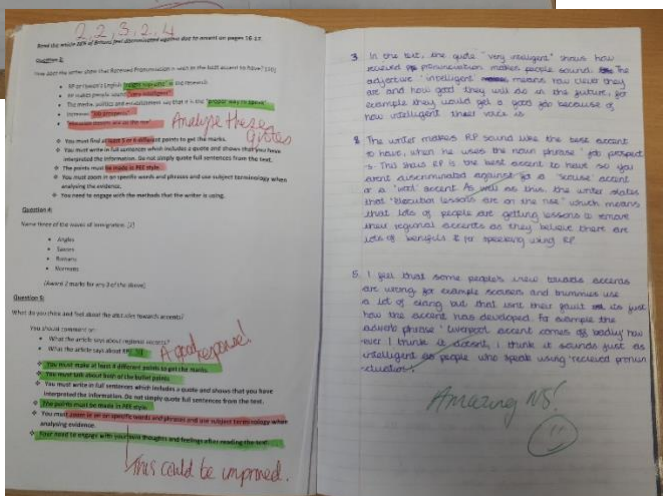 2, 2, 3, 2, 4
Read the whole 28% of Britons feel discriminated against due to accent on pages 16-17.
Question 3:
How does the writer show that Received Pronunciation is seen as the best accent to have? [10]
RP or Queen's English
RP makes people sound "very intelligent"
The media, politics and establishment say that it is the "proper way to speak"
Increase "job prospects"
"Elocution lessons are on the rise"
Analyse these
quotes
You must find at least 3 or 4 different points to get the marks.
You must write in full sentences which includes a quote and shows that you have
interpreted the information. Do not simply quote full sentences from the text.
The points must be made in PEE style.
You must zoom in on specific words and phrases and use subject terminology when
analysing the evidence.
You need to engage with the methods that the writer is using.
Question 4:
Name three of the waves of immigration. [3]
Angles
Saxons
Romans
Normans
(Award 1 marks for any 3 of the above)
Question 5:
What do you think and feel about the attitudes towards accents?
You should comment on:
What the article says about regional accents?
What the article says about RP?
A good response!
You must make at least 4 different points to get the marks.
You must talk about both of the bullet points
You must write in full sentences which includes a quote and shows that you have
interpreted the information. Do not simply quote full sentences from the text.
The points must be made in PEE style.
You must zoom in on specific words and phrases and use subject terminology when
analysing evidence.
Your need to engage with your own thoughts and feelings after reading the text.
This could be improved.
3. In the text, the quote "very intelligent" shows how
recieved pronunciation makes people sound. The
adjective 'intelligent' means how clever they
are and how good they will do in the future, for
example they would get a good job because of
how intelligent their voice is.
The writer makes RP sound like the best accent
to have, when he uses the noun phrase 'job prospect
s'. This shows RP is the best accent to have so you
arent discriminated against for a 'scouse' accent
or a 'wool' accent. As well as this, the writer states
that 'Elocution lessons are on the rise' which means
that lots of people are getting lessons to remove
their regional accents as they believe there are
lots of benefits for speaking using RP.
5. I feel that some people's view towards accents
are wrong, for example scousers and brummies use
a lot of slang but that isnt their fault its just
how the accent has developed. For example the
adverb phrase 'Liverpool accent comes of badly' how
ever I think is decent, i think it sounds just as
intelligent as people who speak using 'recieved pronun
ciation'.
Amazing NS!